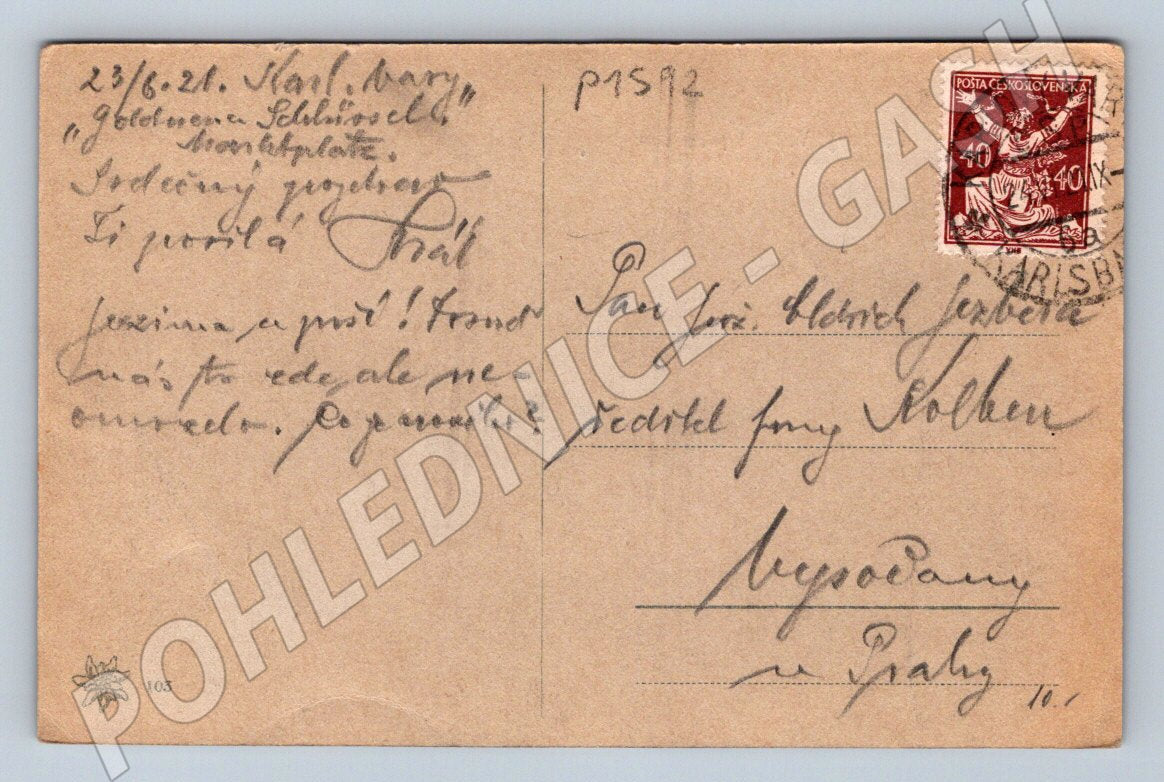 23/6.21. Karl. Vary
"Goldnena Schlüssel"
Marktplatz.
Srdečný pozdrav
Ti posílá Král
je zima a prší!
nás to ale ne-
P1592
POŠTA ČESKOSLOVENSKÁ
40 40
KARLSB
6a
Pan Oldřich Jezbera
ředitel firmy Kolben
Vysočany
u Prahy
10.
103
POHLEDNICE - GASH